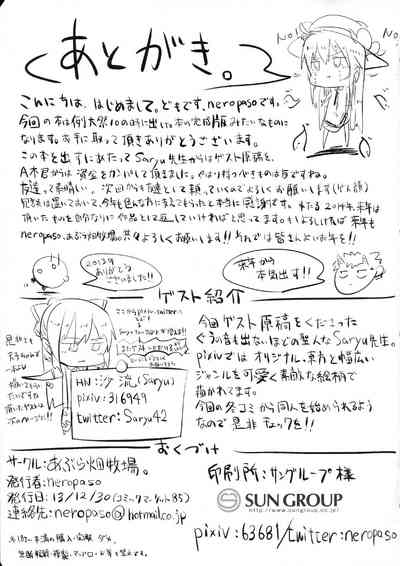 あとがき。
NO!
NO!
こんにちは、はじめまして。どもです、neropasoです。
今回の本は例大祭10の時に出した本の完成版みたいなものに
なります。お手に取って頂きありがとうございます。
この本を出すにあたってSaryu先生からはゲスト原稿を、
A木君からは資金をカンパして頂きました。やはり持つべきものは友ですね。
友達って素晴しい。次回からも友達として頼っていくのでよろしくお願いします(ゲス顔)
neropaso、あぶら畑牧場。共々よろしくお願いします!!それでは皆さんよいお年を!!
2013年
ありがとう
ございました!!
来年から
本気出す!!
ゲスト紹介
HN:沙流(Saryu)
pixiv:316949
twitter:Saryu42
今回ゲスト原稿をくださった
ぐうの音も出ないほどの聖人なSaryu先生。
pixivではオリジナル、東方と幅広い
ジャンルを可愛く素敵な絵柄で
描かれてます。
今回の冬コミから同人を始められるよう
なので是非チェックを!!
おくづけ
サークル:あぶら畑牧場。
発行者:neropaso
発行日:13/12/30(コミックマーケット85)
連絡先:neropaso@hotmail.co.jp
印刷所:サングループ様
SUN GROUP
http://www.sungroup.co.jp/
pixiv:63681/twitter:neropaso